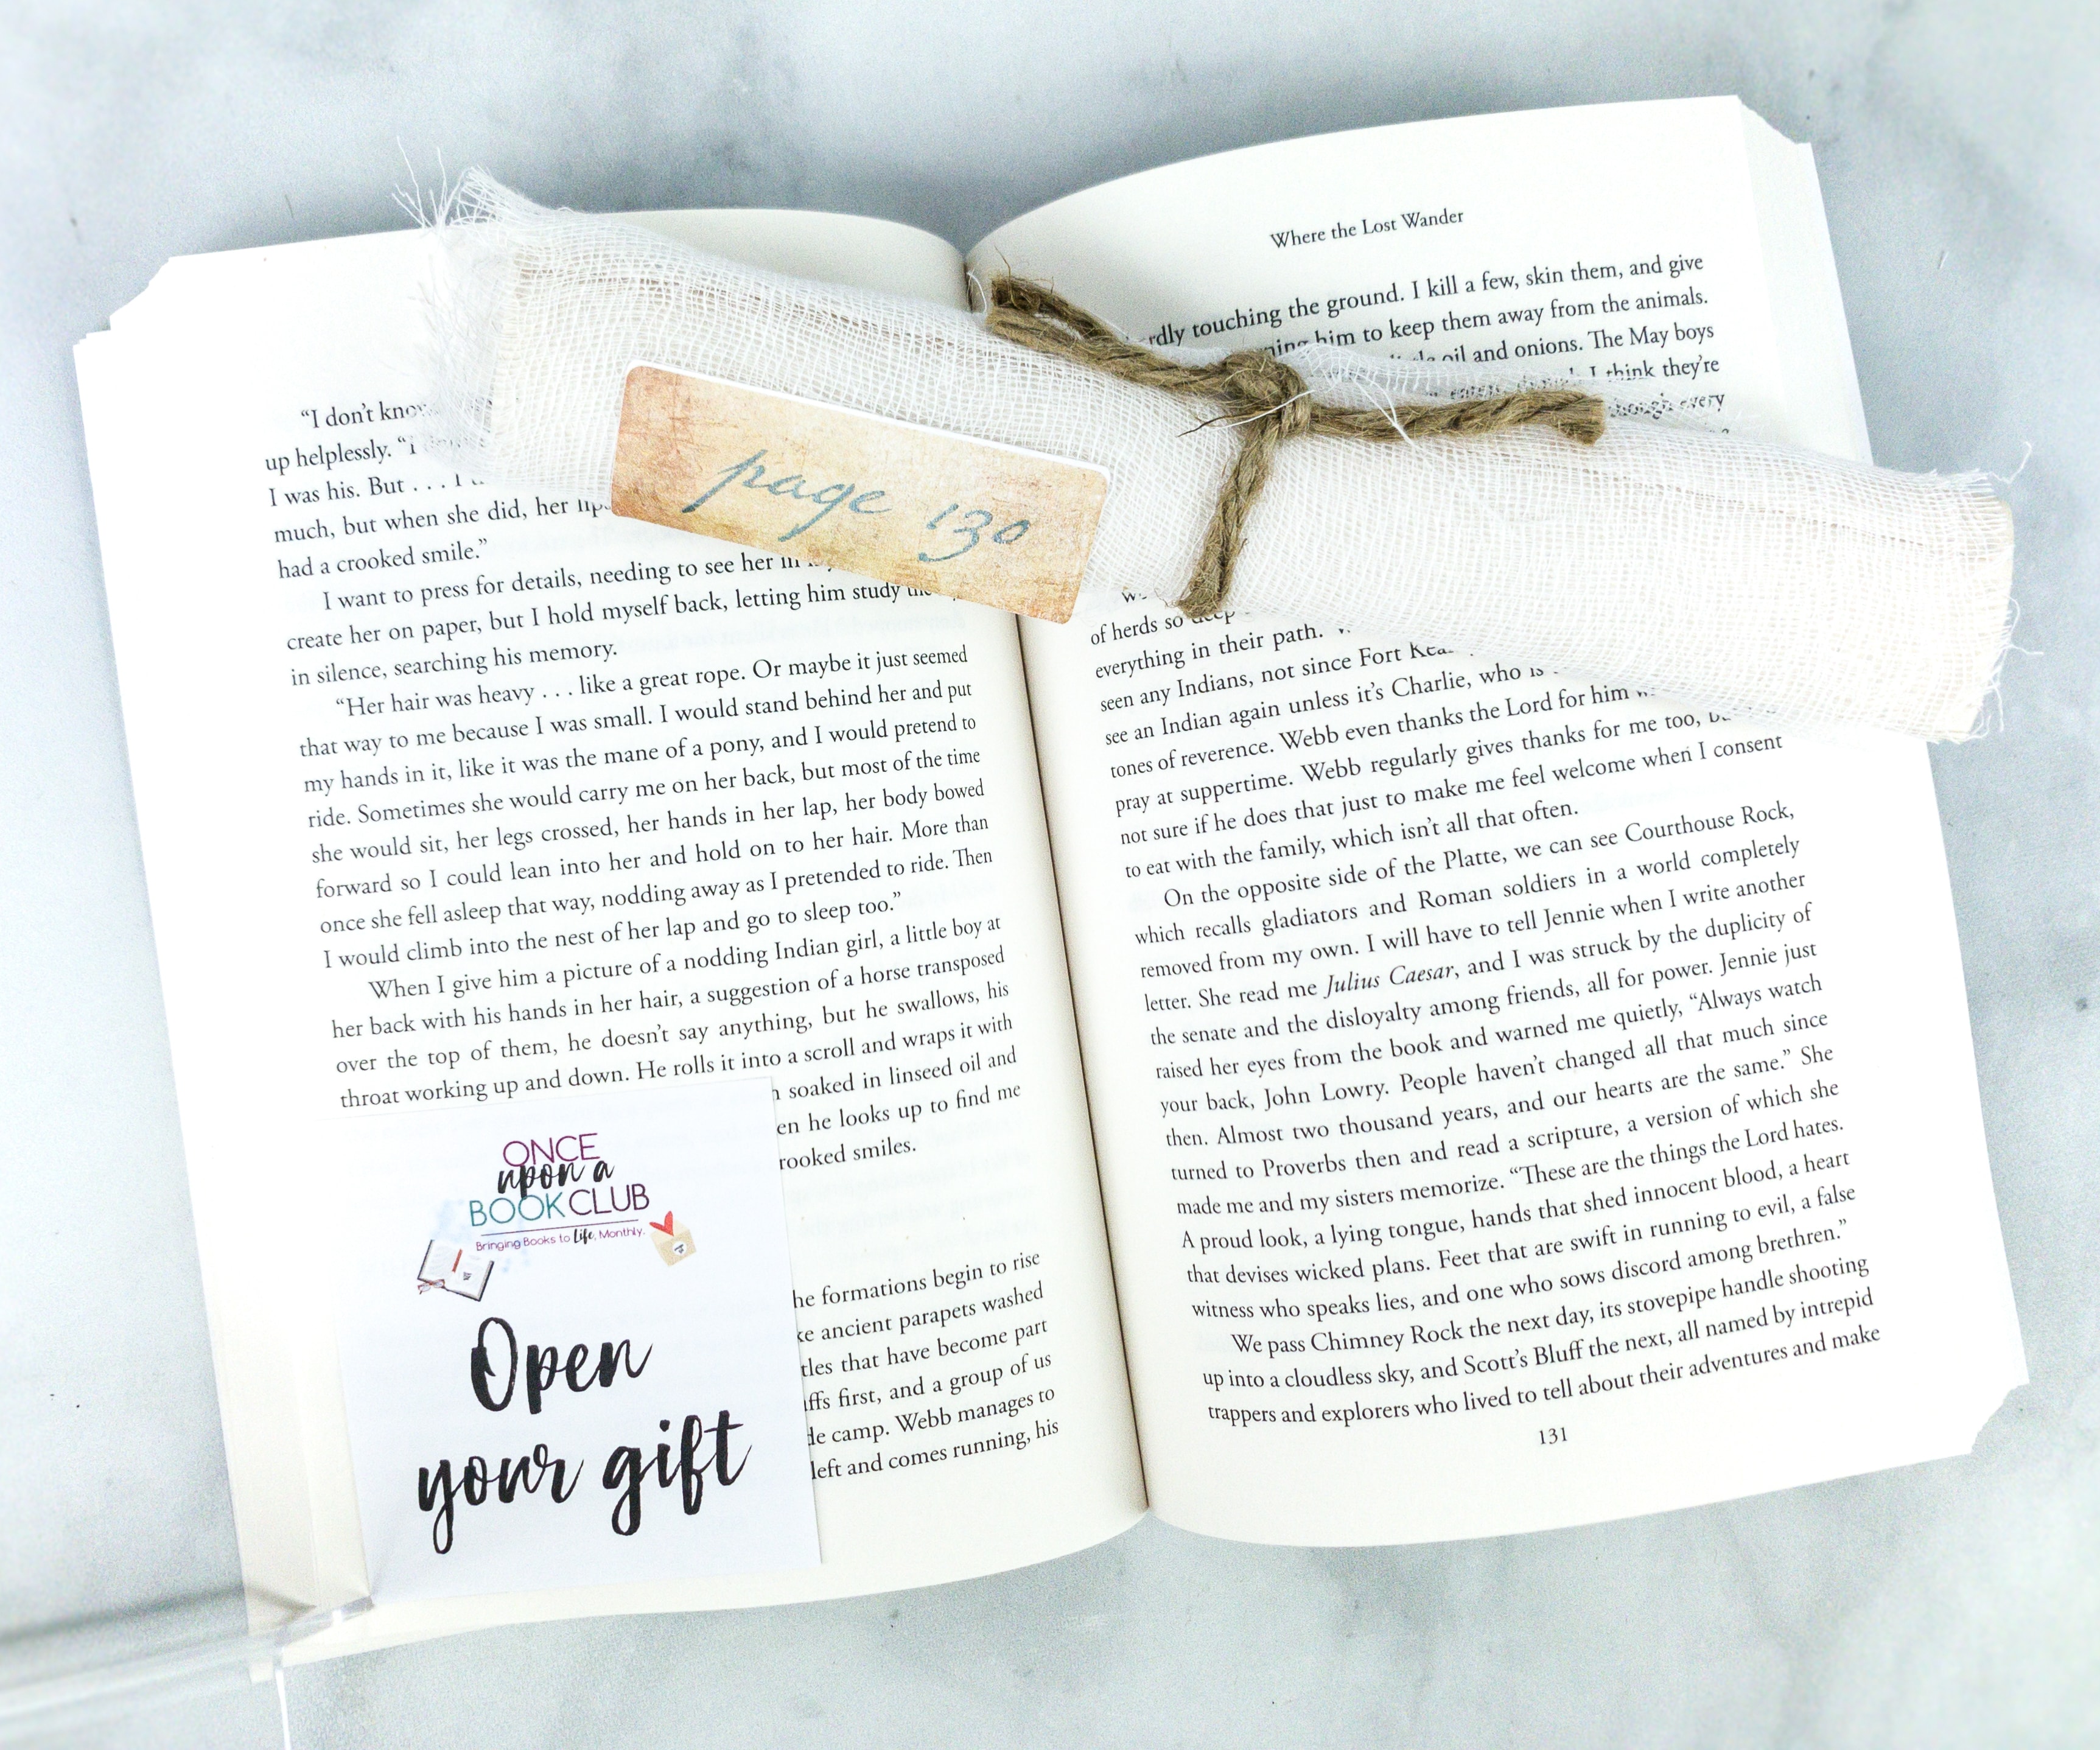 "I don't
up helplessly.
I was his. But . . . I
much, but when she did, her
had a crooked smile."
I want to press for details, needing to see her in
create her on paper, but I hold myself back, letting him study
in silence, searching his memory.
"Her hair was heavy . . . like a great rope. Or maybe it just seemed
that way to me because I was small. I would stand behind her and put
my hands in it, like it was the mane of a pony, and I would pretend to
ride. Sometimes she would carry me on her back, but most of the time
she would sit, her legs crossed, her hands in her lap, her body bowed
forward so I could lean into her and hold on to her hair. More than
once she fell asleep that way, nodding away as I pretended to ride. Then
I would climb into the nest of her lap and go to sleep too."
When I give him a picture of a nodding Indian girl, a little boy at
her back with his hands in her hair, a suggestion of a horse transposed
over the top of them, he doesn't say anything, but he swallows, his
throat working up and down. He rolls it into a scroll and wraps it with
soaked in linseed oil and
he looks up to find me
smiles.
formations begin to rise
ancient parapets washed
that have become part
first, and a group of us
camp. Webb manages to
left and comes running, his
ONCE
upon a
BOOK CLUB
Bringing Books to Life, Monthly.
Open
your gift
page 130
Where the Lost Wander
touching the ground. I kill a few, skin them, and give
him to keep them away from the animals.
oil and onions. The May boys
I think they're
every
of herds so deep
everything in their path.
seen any Indians, not since Fort
see an Indian again unless it's Charlie, who is
tones of reverence. Webb even thanks the Lord for him
pray at suppertime. Webb regularly gives thanks for me too,
not sure if he does that just to make me feel welcome when I consent
to eat with the family, which isn't all that often.
On the opposite side of the Platte, we can see Courthouse Rock,
which recalls gladiators and Roman soldiers in a world completely
removed from my own. I will have to tell Jennie when I write another
letter. She read me Julius Caesar, and I was struck by the duplicity of
the senate and the disloyalty among friends, all for power. Jennie just
raised her eyes from the book and warned me quietly, "Always watch
your back, John Lowry. People haven't changed all that much since
then. Almost two thousand years, and our hearts are the same." She
turned to Proverbs then and read a scripture, a version of which she
made me and my sisters memorize. "These are the things the Lord hates.
A proud look, a lying tongue, hands that shed innocent blood, a heart
that devises wicked plans. Feet that are swift in running to evil, a false
witness who speaks lies, and one who sows discord among brethren."
We pass Chimney Rock the next day, its stovepipe handle shooting
up into a cloudless sky, and Scott's Bluff the next, all named by intrepid
trappers and explorers who lived to tell about their adventures and make
131